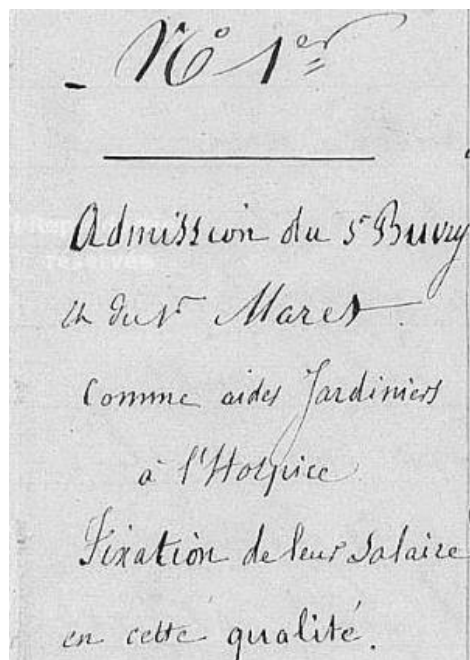 N° 1er
Admission du Sr Buvry
et du Sr Maret
comme aides Jardiniers
à l'Hospice
Fixation de leur Salaire
en cette qualité.